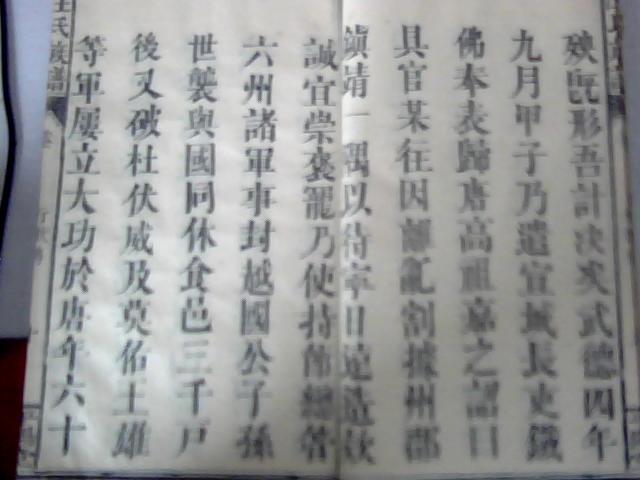 殃既形吾計决矣武德四年
九月甲子乃遣宣城長史鐵
佛奉表歸唐高祖嘉之詔曰
具官某往因離亂割據州郡
鎮靖一隅以待寧日遠送款
誠宜崇褒寵乃使持節總管
六州諸軍事封越國公子孫
世襲與國同休食邑三千戸
後又破杜伏威及莫佑王雄
等軍屢立大功於唐年六十
汪氏族譜